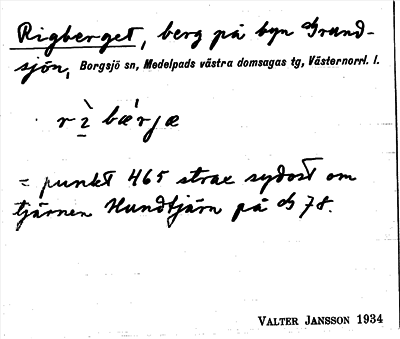 Rigberget, berg på byn Grund-
sjön, Borgsjö sn, Medelpads västra domsagas tg, Västernorrl. l.
rì̱ bǽrjæ
= punkt 465 strax sydost om
tjärnen Hundtjärn på 78.
VALTER JANSSON 1934